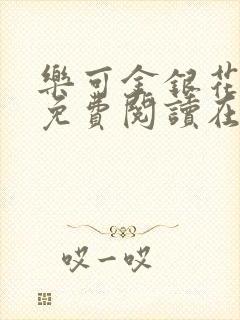 樂可金銀花
免費閱讀在
哎一哎